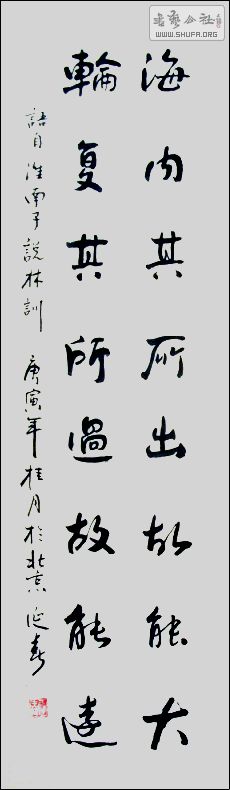 海内其所出故能大
輪复其所過故能遠
語自淮南子說林訓 庚寅年桂月於北京延春
書藝公社
WWW.SHUFA.ORG